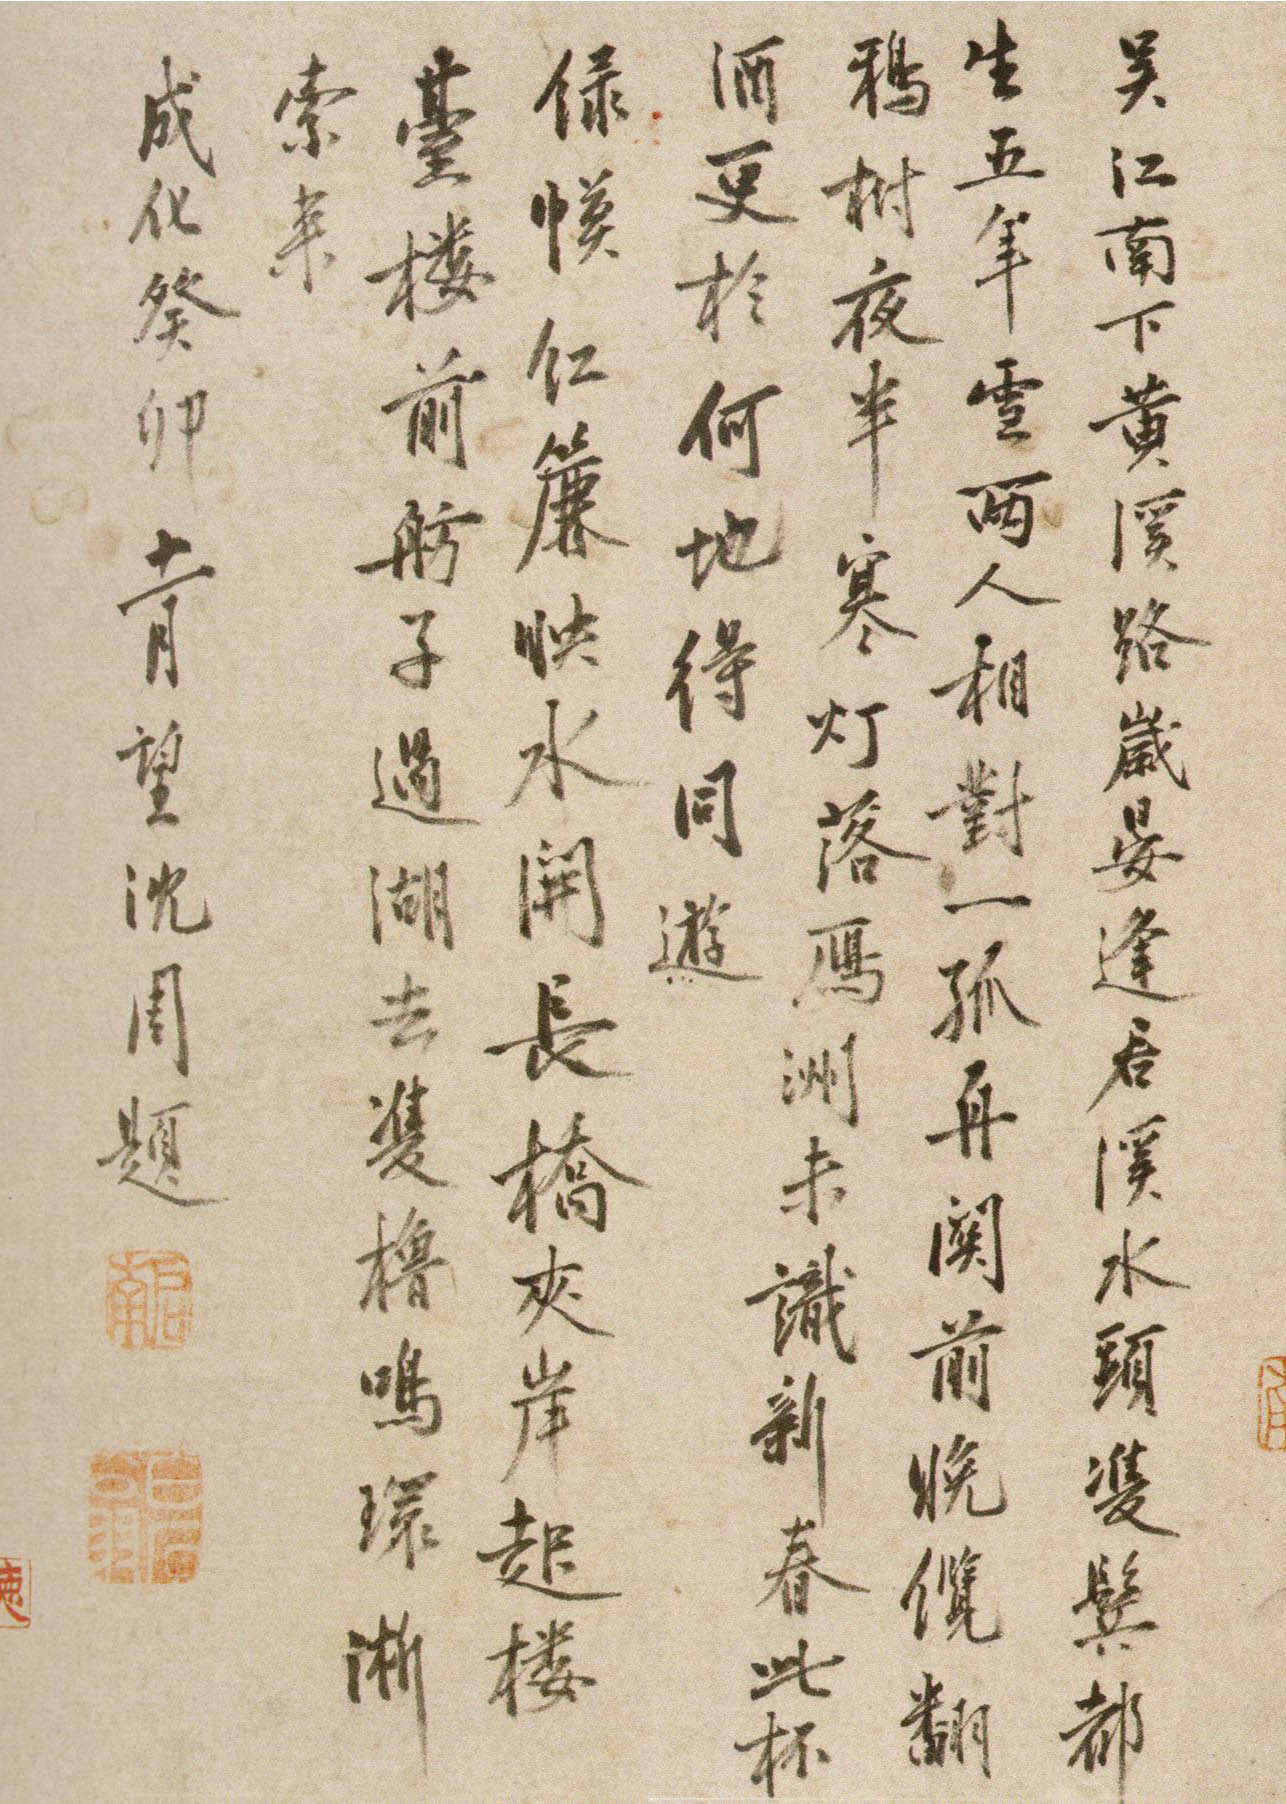 吴江南下黄溪路歲晏逢君溪水頭雙鬂都
生五年雪兩人相對一孤舟関前晚纜翻
鴉樹夜半寒灯落鴈洲未識新春此杯
酒更於何地得同遊
緑幙紅簾映水開長橋夾岸起楼
臺楼前舫子過湖去雙櫓鳴環淅
索来
成化癸卯十一月望沈周題
啟南